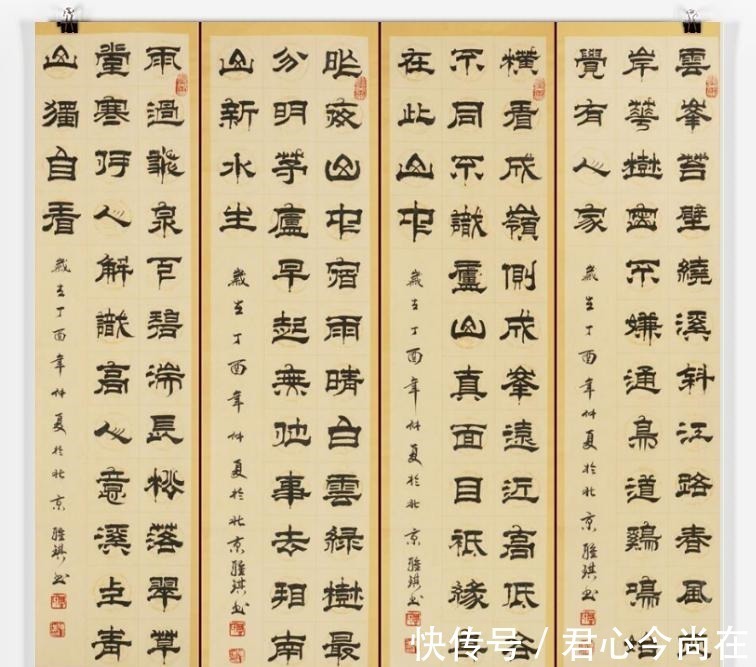 雲峯苔壁繞溪斜江路春風
岸華樹密不嫌通鳥道鷄鳴始
覺有人家
歲在丁酉年仲夏於北京琪書
橫看成嶺側成峯遠近高低各
不同不識廬山真面目衹緣
在此山中
歲在丁酉年仲夏於北京琪書
昨夜山中宿雨晴白雲綠樹最
分明茅廬早起無他事去相南
山新水生
歲在丁酉年仲夏於北京琪書
雨過飛泉下碧湍長松落翠草
堂寒何人解識高人意溪上青
山獨自看
歲在丁酉年仲夏於北京琪書
快传号 / 君心今尚在